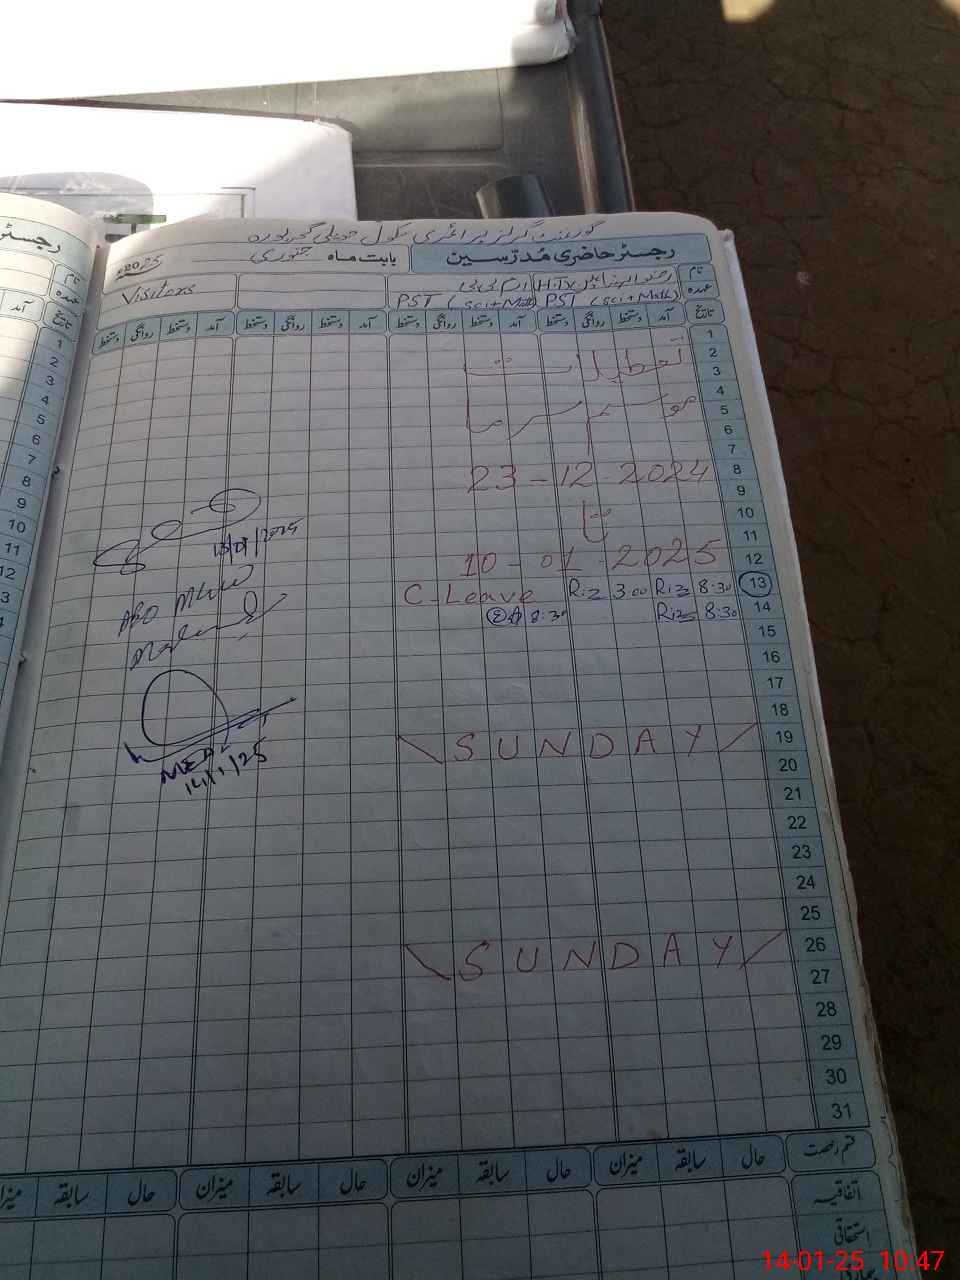 گورنمنٹ گرلز پرائمری سکول حویلی
رجسٹر حاضری مُدرّسین
بابت ماہ جنوری 2025
نام
عہدہ
H.Tr
PST (Sci+Math) PST (Sci+Math)
Visitors
تاریخ آمد دستخط روانگی دستخط آمد دستخط روانگی دستخط آمد دستخط روانگی دستخط آمد دستخط روانگی دستخط
1
2 تعطیلات
3
4
5 موسم سرما
6
7
8 23-12-2024
9
10 تا
11
12 10-01-2025
13 8:30 Riz 3:00 Riz C-Leave
14 8:30 Riz 8:30
15
16
17
18
19 SUNDAY
20
21
22
23
24
25
26 SUNDAY
27
28
29
30
31
13/01/2025
14/1/25
ختم رخصت حال سابقہ میزان حال سابقہ میزان حال سابقہ میزان حال سابقہ میزان
اتفاقیہ
استحقاقی
رجسٹر
نام
عہدہ
تاریخ آمد
1
2
3
4
5
6
7
8
9
10
11
12
14-01-25 10:47